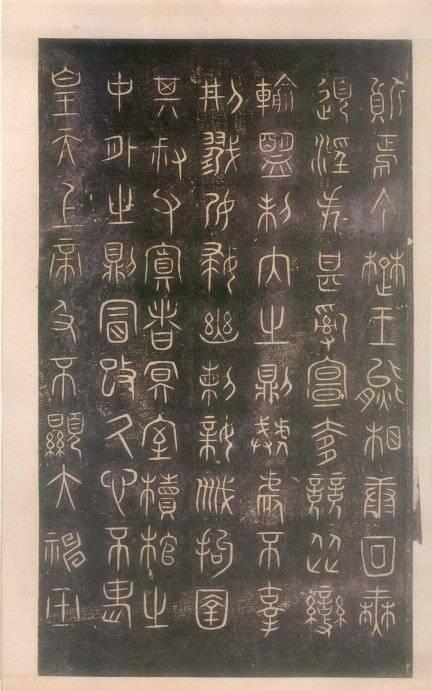 質焉今楚王熊相康回無
道淫失甚亂宣奓競從變
輸盟制内之則虣虐不辜
刑戮孕婦幽刺親戚拘圉
其叔父寘者冥室櫝棺之
中外之則冒改久心不畏
皇天上帝及不顯大神巫